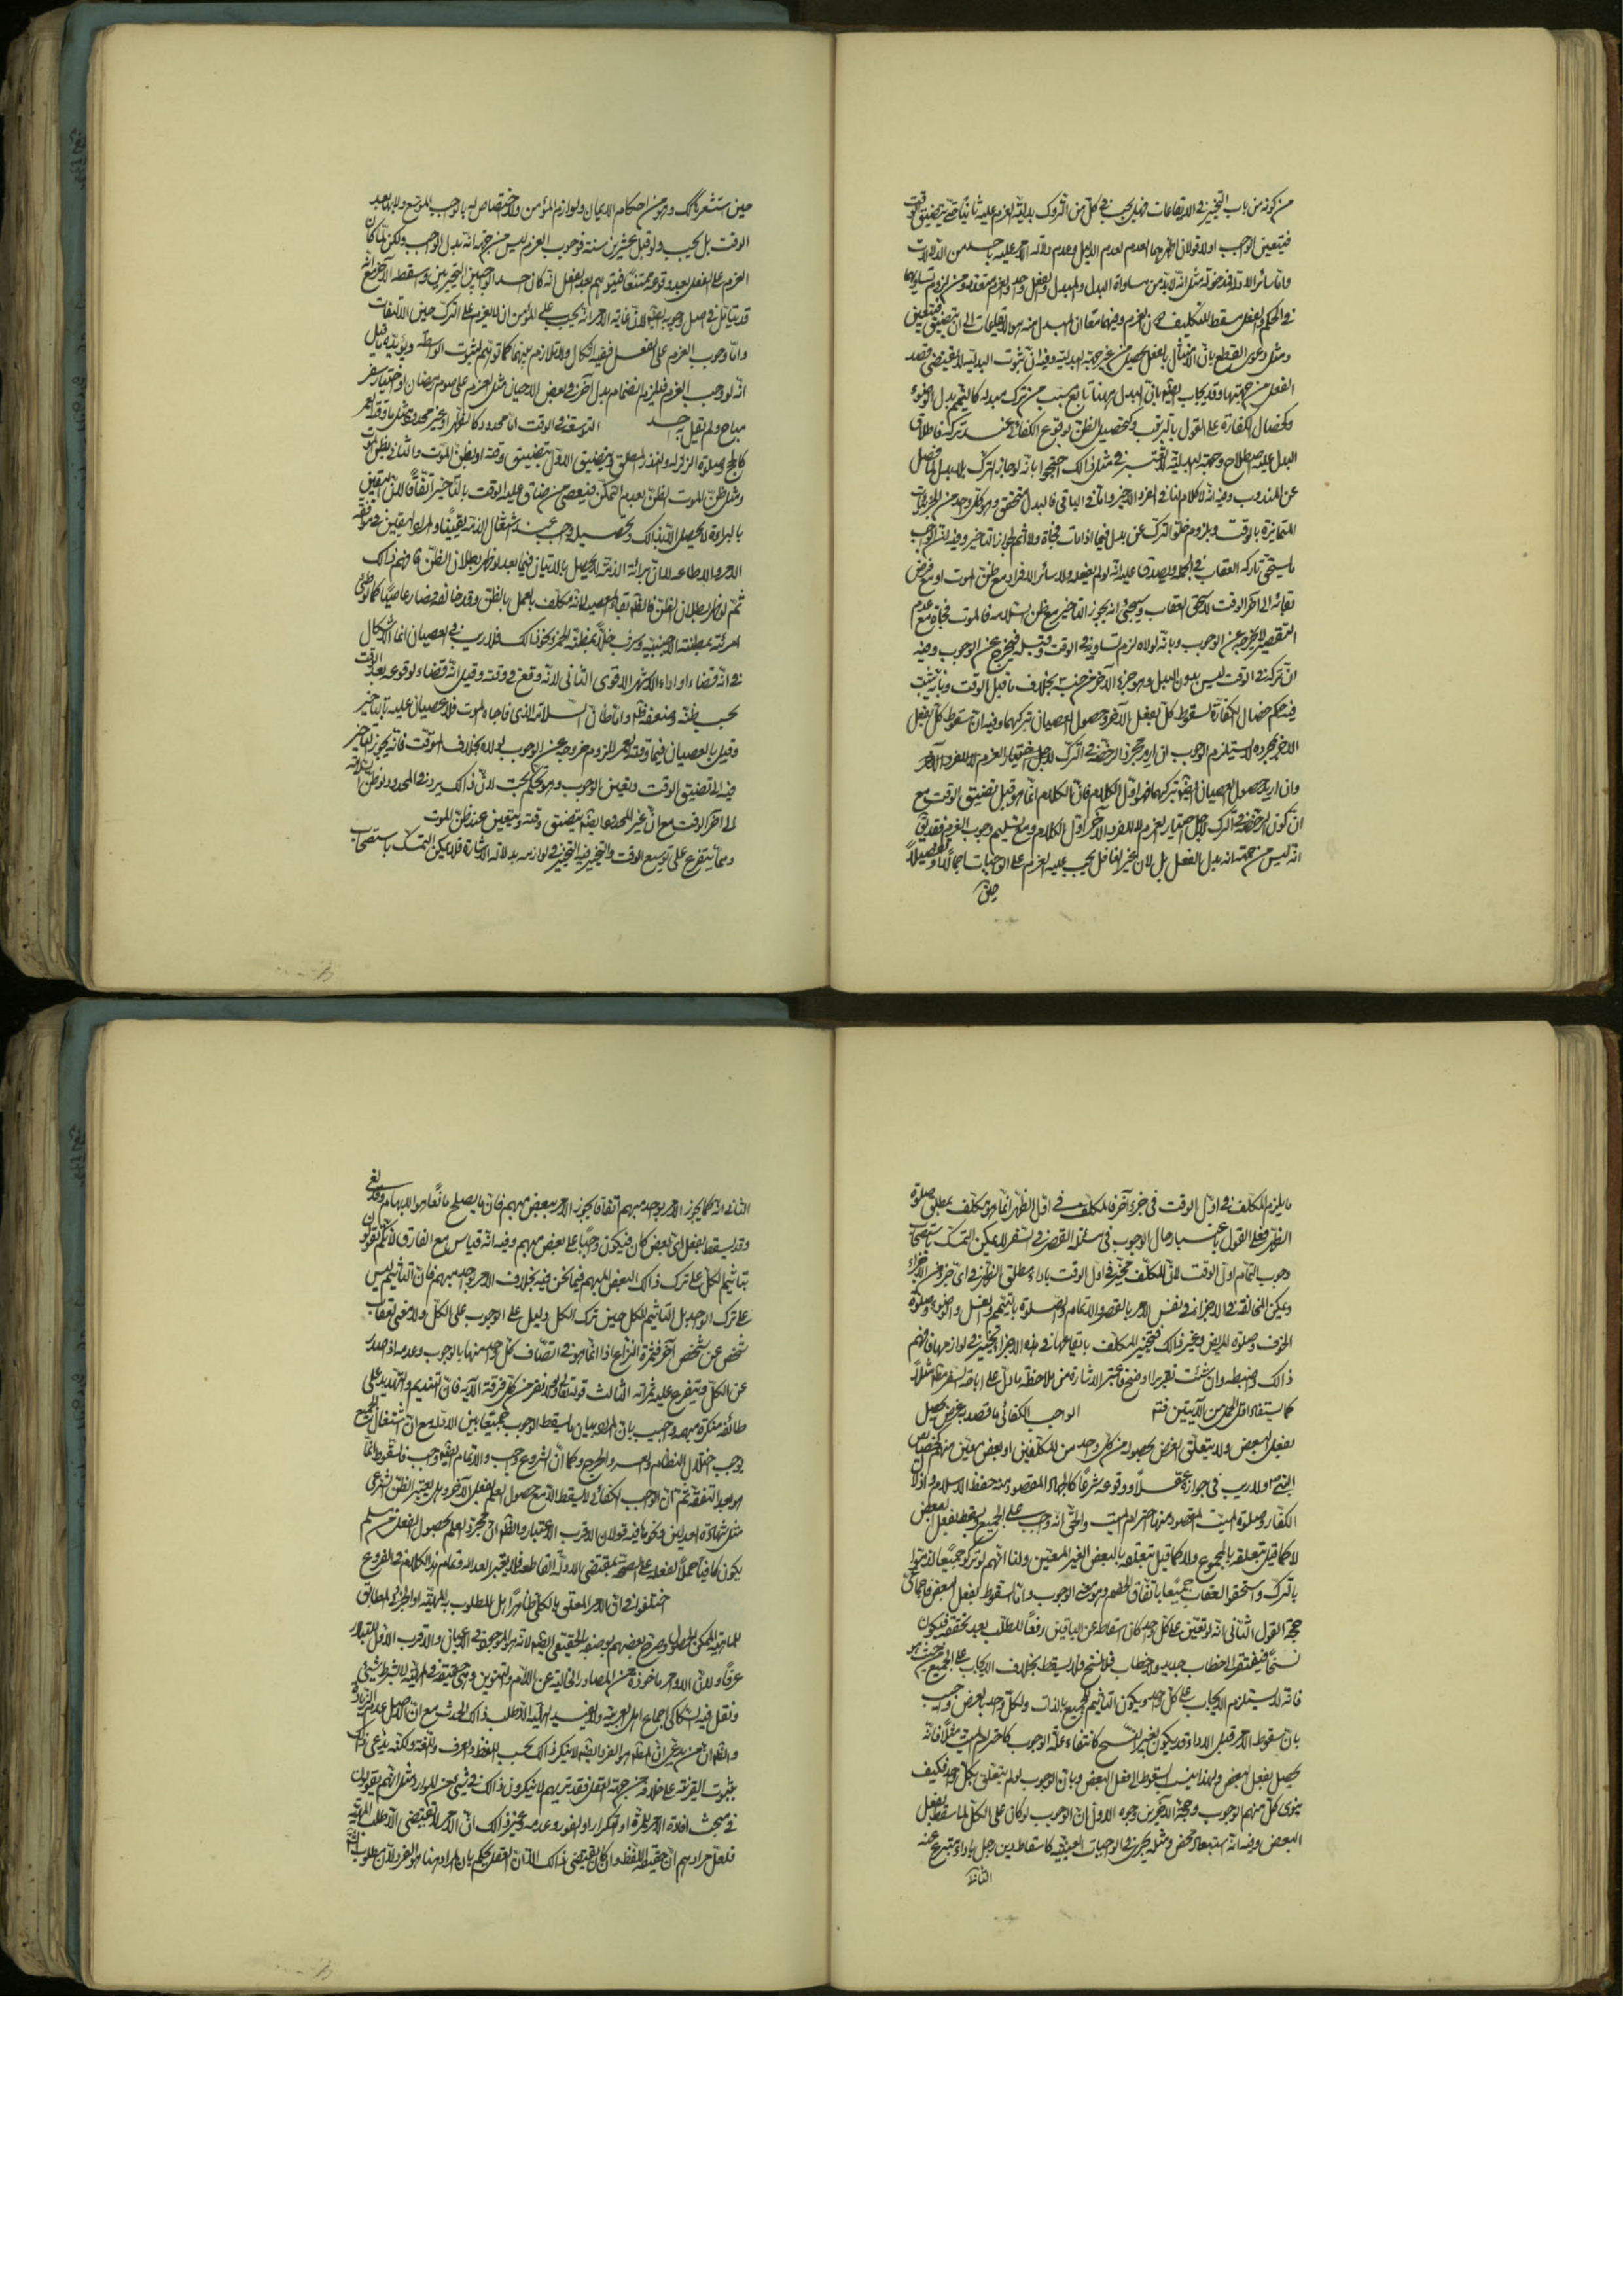 من كونه من باب التخيير في الايقاعات فهل يجب في كل من التروك بدلية العزم عليه ثانيا حتى يتضيق الوقت
فيتعين الواجب اولا قولان اظهرهما العدم لعدم الدليل وعدم دلالة الامر عليه باحد من الدلالات
في الحكم والفعل مسقط للتكليف
ومثل دعوى القطع بان الامتثال بالفعل يحصل من غير جهة البدلية وفيه ان ثبوت البدلية لا يقتضي قصد
الفعل من جهتها وقد يجاب ايضا بان البدل هيهنا تابع مسبب من ترك مبدله كالتيمم بدل الوضوء
وكخصال الكفارة على القول بالترتيب وكتحصيل الظن بوقوع الكفائي عند تركه فاطلاق
البدل عليه اصطلاح وجهة البدلية لا تعتبر في مثل ذلك احتجوا بانه لو جاز الترك بلا بدل لما فصل
عن المندوب وفيه انه لا كلام لنا في الفرد الاخير واما في الباقي فالبدل متحقق وهو كل واحد من الجزئيات
المتمايزة بالوقت وبلزوم خلو الترك عن بدل فيما اذا مات فجأة ولا اثم لجواز التاخير وفيه ان الواجب
ما يستحق تاركه العقاب في الجملة ويصدق عليه انه لو لم يفعله ولا سائر الافراد مع ظن الموت او مع فرض
بقائه الى آخر الوقت لاستحق العقاب وسيجيء انه يجوز التاخير مع ظن السلامة فالموت فجأة مع عدم
التقصير لا يخرجه عن الوجوب وبانه لولاه لزم تساويه في الوقت وقبله فيخرج عن الوجوب وفيه
ان تركه في الوقت ليس بدون البدل وهو جزء الآخر من جنسه بخلاف ما قبل الوقت وبانه يثبت
فيه حكم خصال الكفارة لسقوط كل بفعل الآخر وحصول العصيان بتركهما وفيه ان سقوط كل بفعل
الآخر بمجرده لا يستلزم الوجوب ان اريد مجرد الرخصة في الترك لاجل اختيار العزم لا للفرد الآخر
وان اريد حصول العصيان ايضا بتركهما فهو اول الكلام فان الكلام انما هو قبل تضيق الوقت مع
ان كون الرخصة في الترك لاجل اختيار العزم لا للفرد الآخر اول الكلام ومع تسليم وجوب العزم فقد يق
انه ليس من جهة انه بدل الفعل بل لان غير الغافل يجب عليه العزم على الواجبات اجمالا او تفصيلا
حين
حين استشعر بذلك وهو من احكام الايمان ولوازم المؤمن ولا اختصاص له بالواجب الموسع ولا بما بعد
الوقت بل يجب ولو قبل بعشرين سنة فوجوب العزم ليس من جهة انه بدل الواجب ولكن لما كان
العزم على الفعل بعد وقوعه ممتنعا فيتوهم بعد الفعل انه كان احد الواجبين التخييريين وسقط الآخر مع انه
قد يتأمل في اصل وجوبه ايضا لان غاية الامر انه يجب على المؤمن ان لا يعزم على الترك حين الالتفات
واما وجوب العزم على الفعل ففيه اشكال ولا تلازم بينهما كما توهم لثبوت الواسطة ويؤيده ما قيل
انه لو وجب العزم فيلزم انضمام بدل آخر في بعض الاحيان مثل العزم على صوم رمضان او اختيار سفر
مباح ولم يقل به احد التوسعة في الوقت اما محدود كالظهر او غير محدود مثل ما وقته العمر
كالحج وصلوة الزلزلة والنذر المطلق ويتضيق الاول بتضيق وقته او بظن الموت والثاني بظن الموت
ومثل ظن الموت الظن بعدم التمكن فيعصي من ضاق عليه الوقت بالتاخير اتفاقا لان اليقين
بالبراءة لا يحصل الا بذلك وتحصيله واجب عند اشتغال الذمة يقينا والمراد باليقين في موافقة
الامر والاطاعة
ثم لو ظهر بطلان الظن فالظ بقاء العصيان لانه مكلف بالعمل بالظن وقد خالفه فصار عاصيا كما لو وطئ
امرئته بمظنة الاجنبية وشرب خلا بمظنة الخمر ونحو ذلك فلا ريب في العصيان انما الاشكال
في انه قضاء او اداء الاشهر الاقوى الثاني لانه وقع في وقته وقيل انه قضاء لوقوعه بعد الوقت
بحسب ظنه وضعفه ظ واما ظان السلامة الذي فاجاه الموت فلا عصيان عليه بالتاخير
وقيل بالعصيان فيما وقته العمر للزوم خروجه عن الوجوب لولاه بخلاف الموقت فانه يجوز التاخير
فيه الى تضيق الوقت وبتعين الوجوب وهو تحكم بحت لان ذلك يرد في المحدود لو ظن السلامة
الى آخر الوقت مع ان غير المحدود ايضا يتضيق وقته ويتعين عند ظن الموت
ومما يتفرع على توسيع الوقت والتخيير فيه التخيير في لوازمه بدلالة الاشارة فلا يمكن التمسك باستصحاب
ما يلزم المكلف في اول الوقت في جزء آخر فالمكلف في اول الظهر انما هو مكلف بمطلق صلوة
الظهر فعلى القول باعتبار حال الوجوب في مسئلة القصر في السفر لا يمكن التمسك باستصحاب
وجوب التمام اول الوقت لان المكلف مخير في اول الوقت باداء مطلق الظهر في اي جزء من الاجزاء
ويمكن المخالفة في الاجزاء في نفس الامر بالقصر والاتمام والصلوة بالتيمم والغسل والوضوء وصلوة
الخوف وصلوة المريض وغير ذلك فتخيير المكلف بايقاعها في هذه الاجزاء تخيير في لوازمها فافهم
ذلك واضبطه وان شئت تقريرا اوضح فاعتبر الاشارة من ملاحظة ما دل على اباحة السفر مثلا
كما يستفاد اقل الحمل من الآيتين فتم الواجب الكفائي ما قصد به غرض يحصل
بفعل البعض ولا يتعلق الغرض بحصوله من كل واحد من المكلفين او بعض معين منهم كخصائص
النبي ص ولا ريب في جوازه عقلا ووقوعه شرعا كالجهاد المقصود منه حفظ الاسلام واذلال
الكفار وصلوة الميت المقصود منها احترام الميت والحق انه واجب على الجميع ويسقط بفعل البعض
لا كما قيل بتعلقه بالمجموع ولا كما قيل بتعلقه بالبعض الغير المعين ولنا انهم لو تركوا جميعا لذموا
بالترك واستحقوا العقاب جميعا باتفاق الخصم وهو معنى الوجوب واما السقوط بفعل البعض فاجماعي
حجة القول الثاني انه لو تعين على كل واحد كان اسقاطه عن الباقين رفعا للطلب بعد تحققه فيكون
نسخا فيفتقر الى خطاب جديد ولا خطاب فلا نسخ فلا يسقط بخلاف الايجاب على الجميع من حيث هو
فانه لا يستلزم الايجاب على كل واحد ويكون التاثيم للجميع بالذات ولكل واحد بالعرض واجيب
بان سقوط الامر قبل الاداء قد يكون بغير النسخ كانتفاء علة الوجوب كاحترام الميت مثلا فانه
يحصل بفعل البعض ولهذا ينسب السقوط الى فعل البعض وبان الوجوب لو لم يتعلق بكل واحد فكيف
ينوي كل منهم الوجوب وحجة الآخرين وجوه الاول ان الوجوب لو كان على الكل لما سقط بفعل
البعض وفيه انه استبعاد محض ومثله يجري في الواجبات العينية كاسقاط دين رجل باداء متبرع عنه
الثاني
الثاني انه كما يجوز الامر بواحد مبهم اتفاقا يجوز الامر ببعض مبهم فان ما يصلح مانعا هو الابهام وقد لغي
وقد يسقط بفعل اي بعض كان فيكون واجبا على بعض مبهم وفيه انه قياس مع الفارق لانكم تقولون
بتاثيم الكل على ترك ذلك البعض المبهم فيما نحن فيه بخلاف الامر بواحد مبهم فان التاثيم ليس
على ترك الواحد بل التاثيم للكل حين ترك الكل دليل على الوجوب على الكل ولا معنى لعقاب
شخص عن شخص آخر فثمرة النزاع اذا انما هو في اتصاف كل واحد منها بالوجوب وعدمه اذا صدر
عن الكل ويتفرع عليه ثمراته الثالث قوله تعالى فلولا نفر من كل فرقة الآية فان التنديم والتهديد على
طائفة منكرة مبهمة واجيب بان المراد بيان ما يسقط الوجوب جمعا بين الادلة مع ان اشتغال الجميع
يوجب اختلال النظام والعسر والحرج وكما ان الشروع واجب والاتمام ايضا واجب فالسقوط انما
هو بعد التفقه ثم ان الواجب الكفائي لا يسقط الا مع حصول العلم بفعل الآخر وهل يعتبر الظن الشرعي
مثل شهادة العدلين ونحوها فيه قولان الاقرب الاعتبار والظ ان مجرد العلم بحصول الفعل من مسلم
يكون كافيا حملا لفعله على الصحة بمقتضى الادلة القاطعة فلا يعتبر العدالة وتمام هذا الكلام في الفروع
اختلفوا في ان الامر المعلق بالكلي ظاهرا هل المطلوب به الماهية او الجزئي المطابق
للماهية الممكن الحصول وصرح بعضهم بوصفه بالحقيقي ايضا لانه هو الموجود في الاعيان والاقرب الاول للتبادر
عرفا ولان الاوامر ماخوذة من المصادر الخالية عن اللام والتنوين وهي حقيقة في الماهية لا بشرط شيئ
ونقل فيه السكاكي اجماع اهل العربية ولا يفيد الهيئة الا طلب ذلك الحدث مع ان الاصل عدم الزيادة
والظ ان من يدعي ان المط هو الفرد ايضا لا ينكر ذلك بحسب اللفظ والعرف واللغة ولكنه يدعي ذلك
بثبوت القرينة على خلافه من جهة العقل فقد تريهم لا ينكرون ذلك في شيئ من الموارد مثل انهم يقولون
في مبحث افادة الامر للمرة او التكرار او الفور وعدمه وغير ذلك ان الامر لا يقتضي الا طلب الماهية
فلعل مرادهم ان حقيقة اللفظ وان كان يقتضي ذلك الا ان العقل يحكم بان المراد هنا هو الفرد لان مطلوب